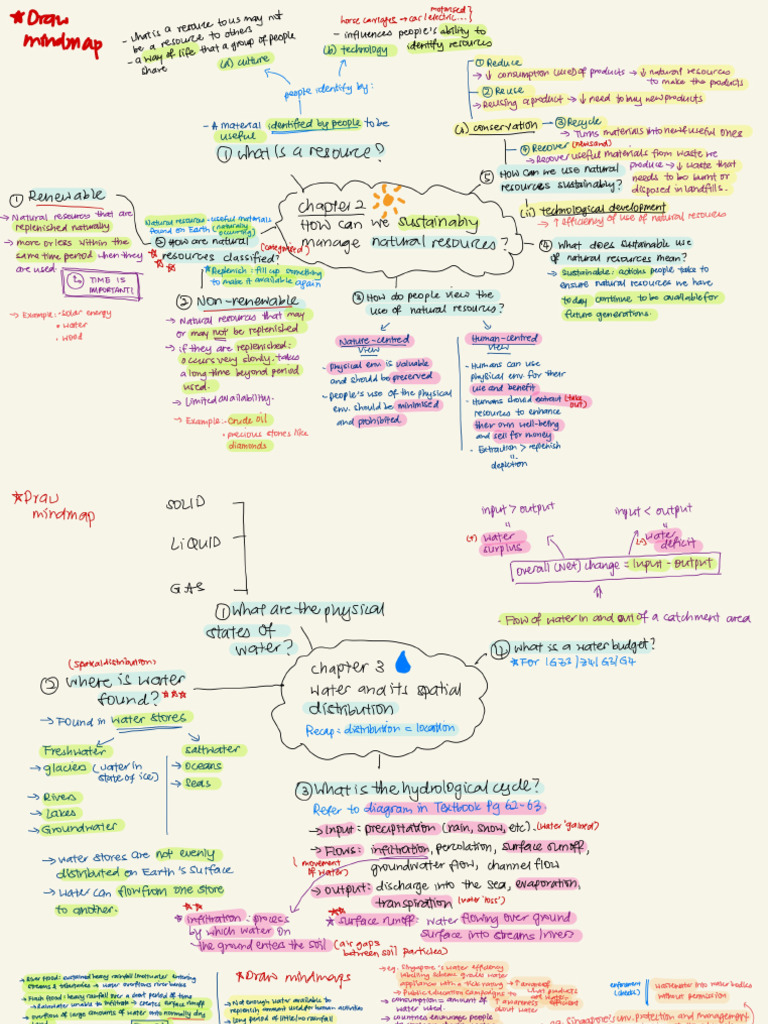 ★Draw
mindmap
- What is a resource to us may not
be a resource to others
- a way of life that a group of people
share
(a) culture
motorised}
horse carriages → car (electric...}
- influences people's ability to
(b) technology identify resources
people identify by:
- A material identified by people to be
useful
① What is a resource?
① Reduce
→ ↓ consumption (use) of products → ↓ natural resources
to make the products
② Reuse
→ Reusing a product → ↓ need to buy new products
(i) conservation
③ Recycle
→ Turns materials into new & useful ones
④ Recover
→ Recover useful materials from waste we
produce → ↓ waste that
needs to be burnt or
disposed in landfills.
⑤ How can we use natural
resources sustainably?
(ii) technological development
→ ↑ efficiency of use of natural resources
chapter 2
How can we sustainably
manage natural resources?
① Renewable
→ Natural resources that are
replenished naturally
→ more or less within the
same time period when they
are used.
TIME IS
IMPORTANT!
→ Example: • solar energy
• water
• wood
Natural resources - useful materials
found on Earth (naturally
occurring)
② How are natural
resources classified? (categorised)
★ ★ ★
★ Replenish: fill up something
to make it available again
② Non-renewable
→ Natural resources that may
or may not be replenished
→ if they are replenished:
occurs very slowly. takes
a long time beyond period
used.
→ Limited availability.
→ Example: • crude oil
• precious stones like
diamonds
③ How do people view the
use of natural resources?
Nature-centred
view
- Physical env. is valuable
and should be preserved
- people's use of the physical
env. should be minimised
and prohibited
Human-centred
view
- Humans can use
physical env. for their
use and benefit
- Humans should extract (take
out)
resources to enhance
their own well-being
and sell for money
- Extraction > replenish
=
depletion
④ What does sustainable use
of natural resources mean?
→ Sustainable: actions people take to
ensure natural resources we have
today continue to be available for
future generations.
★Draw
mindmap
SOLID
LIQUID
GAS
① What are the physical
states of
water?
input > output
input < output
"
"
(+) water
surplus
(-) water
deficit
overall (net) change = input - output
- Flow of water in and out of a catchment area
④ what is a water budget?
★ For
chapter 3
water and its spatial
distribution
Recap: distribution = location
(spatial distribution)
② where is water
found? ★★★
→ Found in water stores
Freshwater
→ glaciers (water in
state of ice)
→ Rivers
→ Lakes
→ Groundwater
saltwater
→ oceans
→ Seas
→ water stores are not evenly
distributed on Earth's surface
→ water can flow from one store
to another.
③ What is the hydrological cycle?
Refer to diagram in Textbook Pg 62-63.
→ Input: precipitation (rain, snow, etc). (water 'gained')
→ Flows: infiltration, percolation, surface runoff,
(movement
of water)
groundwater flow, channel flow
→ Output: discharge into the sea, evaporation,
transpiration (water 'loss')
★★
★ infiltration: process
by which water on
the ground enters the soil (air gaps
between soil particles)
★★
★ surface runoff: water flowing over ground
surface into streams/rivers
★Draw mindmaps
- Not enough water available to
replenish amount used for human activities
→ long period of little/no rainfall
→ e.g. Singapore's water efficiency
labelling scheme grades water
appliance with a tick rating → ↑ aware of
→ Public education campaigns to
→ ↑ awareness
about water
→ consumption = amount of
water used.
→ countries encourage people